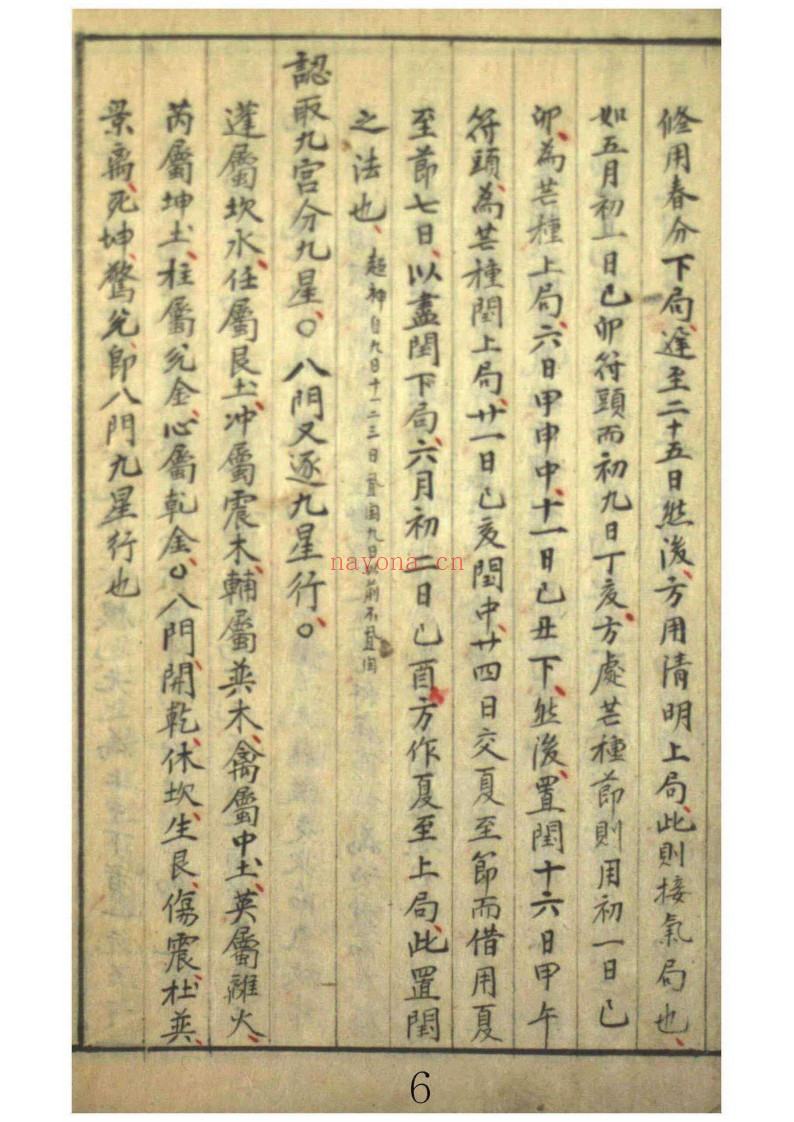 修用春分下局、遲至二十五日然後、方用清明上局、此則接氣局也、
如五月初一日己卯符頭而初九日丁亥、方處芒種節則用初一日己
卯、為芒種上局、六日甲申中、十一日己丑下、然後、置閏十六日甲午
符頭、為芒種閏上局、廿一日己亥閏中、廿四日交夏至節而借用夏
至節七日、以盡閏下局、六月初二日己酉方作夏至上局、此置閏
之法也、
超神自九日十一二三日置閏九日以前不置閏
認取九宮分九星。○八門又逐九星行。○
蓬屬坎水、任屬艮土、冲屬震木、輔屬巽木、禽屬中土、英屬離火、
芮屬坤土、柱屬兌金、心屬乾金、○八門、開乾、休坎、生艮、傷震、杜巽、
景离、死坤、驚兌、即八門九星行也
nayona.cn
6